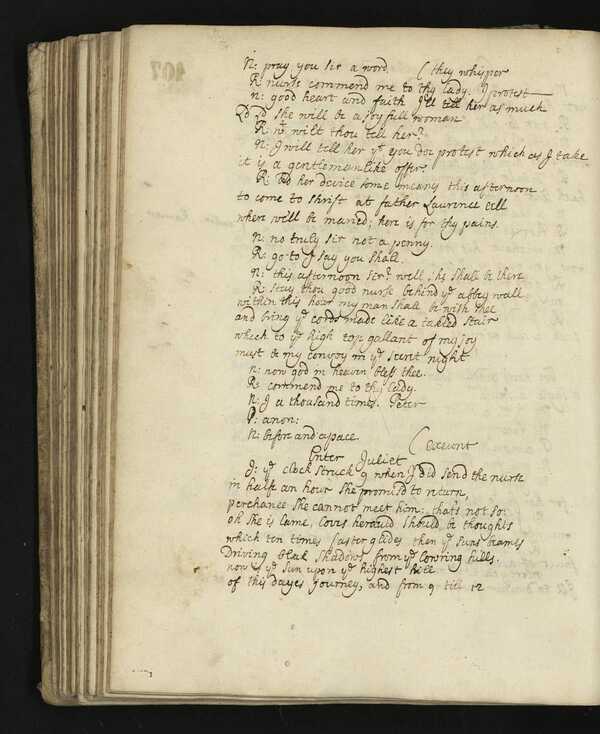 N: pray you sir a word (they whisper
R nurse commend me to thy lady. I protest—
n: good heart and faith I'll tell her as much
Ld Ld she will be a joyfull woman
R: wt wilt thou tell her?
N: I will tell her yt you doe protest which as I take
it is a gentlemanlike offer
R: Bid her device some meanes this afternoon
to come to shrift at father Laurence cell
where we'll be maried; here is for thy pains.
N: no truly sir not a penny.
R: go to I say you shall.
N: this afternoon sir? well, she shall be there
R: stay thou good nurse behind ye abbey wall
within this hour my man shall be with thee
and bring ye cords made like a tackled stair
which to ye high top gallant of my joy
must be my convoy in ye secret night
n: now god in heaven bless thee.
R: commend me to thy lady.
N: I a thousand times. Peter
P: anon:
N: before and apace (exeunt
Enter Juliet
J: ye clock struck 9 when I did send the nurse
in halfe an hour she promis'd to return,
perchance she cannot meet him: that's not so:
oh she is lame, loves herauld should be thoughts
which ten times faster glides then ye suns beames
Driving back shadows from ye lowring hills.
now is ye sun upon ye highest hill
of this dayes journey, and from 9 till 12
107